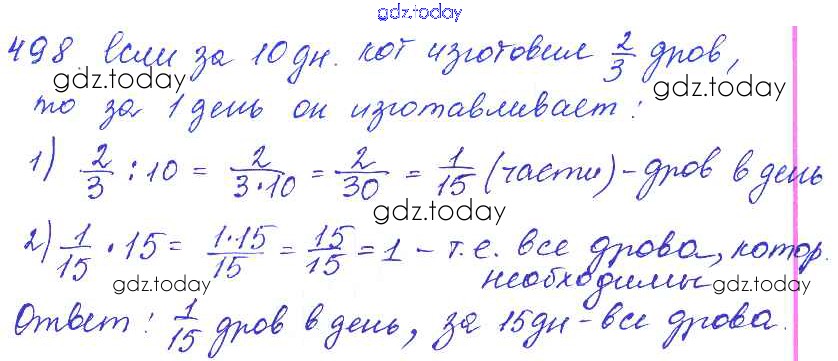 gdz.today
498. Если за 10 дн. кот изготовил 2/3 дров,
gdz.today gdz.today
то за 1 день он изготавливает:
1) 2/3 : 10 = 2/3·10 = 2/30 = 1/15 (части) - дров в день
gdz.today
2) 1/15 · 15 = 1·15/15 = 15/15 = 1 - т.е. все дрова, котор.
необходимы
gdz.today gdz.today
Ответ: 1/15 дров в день, за 15дн - все дрова.